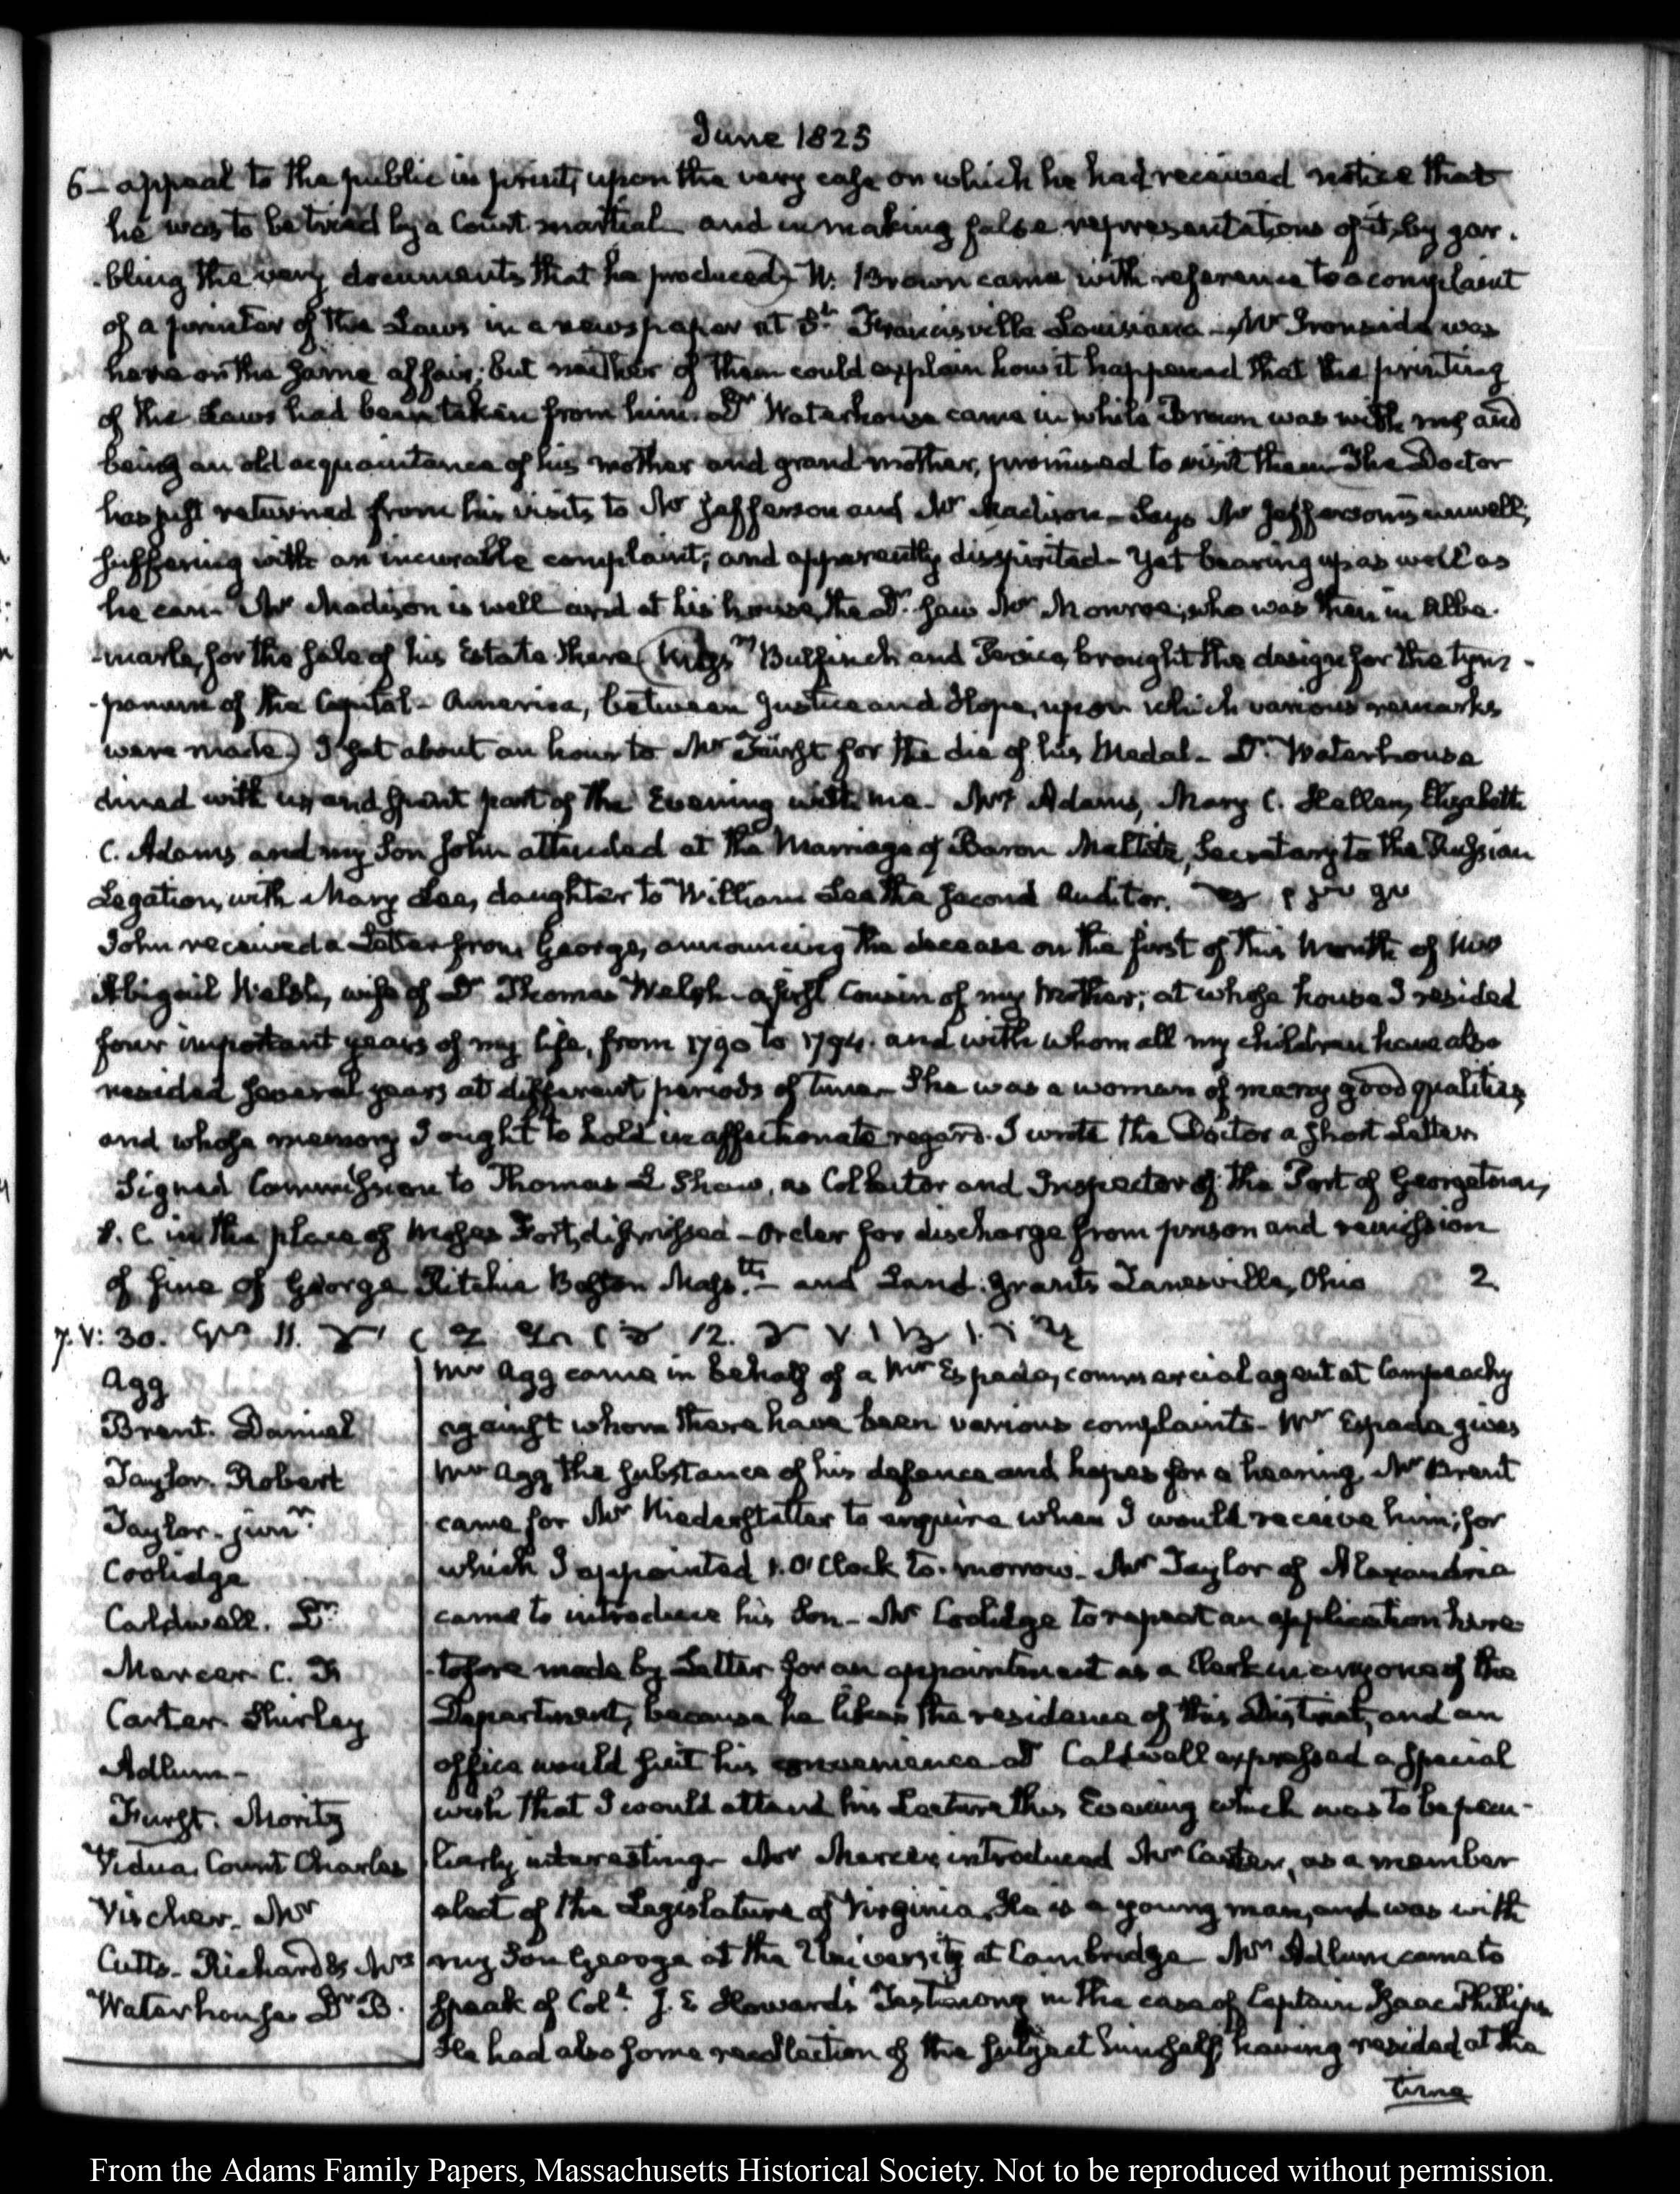 June 1825
6 – appeal to the public in print, upon the very case on which he had received notice that
he was to be tried by a Court martial and in making false representations of it, by gar-
-bling the very documents that he produced) W. Brown came with reference to a complaint
of a printer of the Laws in a newspaper at St. Francisville Louisiana – Mr Ironside was
here on the same affair; but neither of them could explain how it happened that the printing
of the Laws had been taken from him. Dr Waterhouse came in while Brown was with me, and
being an old acquaintance of his mother and grandmother, promised to visit them. The Doctor
has just returned from his visits to Mr Jefferson and Mr Madison – Says Mr Jefferson is unwell;
suffering with an incurable complaint; and apparently dispirited – Yet bearing up as well as
he can. Mr Madison is well and at his house, the Dr. saw Mr Monroe; who was then in Albe-
-marle, for the sale of his Estate there (Messrs Bulfinch and Persico, brought the design for the tym-
-panum of the Capitol – America, between Justice and Hope, upon which various remarks
were made) I sat about an hour to Mr Fürst for the die of his Medal – Dr. Waterhouse
dined with us, and spent part of the Evening with me – Mrs Adams, Mary C. Hellen, Elizabeth
C. Adams, and my Son John attended at the Marriage of Baron Maltitz, Secretary to the Russian
Legation, with Mary Lee, daughter to William Lee the second Auditor.
John received a Letter from George, announcing the decease on the first of this Month of Mrs
Abigail Welsh, wife of Dr Thomas Welsh – a first Cousin of my Mother; at whose house I resided
four important years of my life, from 1790 to 1794. and with whom all my children have also
resided several years at different periods of time – She was a woman of many good qualities,
and whose memory I ought to hold in affectionate regard. I wrote the Doctor a short Letter.
Signed Commission to Thomas L Shaw, as Collector and Inspector of the Port of Georgetown,
S. C. in the place of Moses Fort, dismissed – Order for discharge from prison and remission
of fine of George Ritchie Boston Masstts. – and Land grants Zanesville, Ohio 2
7. V: 30. 11. 12.
Agg
Brent. Daniel
Taylor. Robert
Taylor – junr.
Coolidge
Caldwell. Dr
Mercer C. F.
Carter. Shirley
Adlum –
Furst. Moritz
Vidua, Count Charles
Vischer. Mr
Cutts – Richard & Mrs
Waterhouse Dr B.
Mr Agg came in behalf of a Mr Espada, commercial agent at Campeachy
against whom there have been various complaints – Mr Espada gives
Mr Agg the substance of his defence and hopes for a hearing. Mr Brent
came for Mr Niederstetter to enquire when I would receive him; for
which I appointed 1. O'Clock to-morrow. Mr Taylor of Alexandria
came to introduce his Son – Mr Coolidge to repeat an application here-
-tofore made by Letter for an appointment as a Clerk in any one of the
Department; because he likes the residence of this District, and an
office would suit his convenience. Dr Caldwell expressed a special
wish that I would attend his Lecture this Evening which was to be pecu-
liarly interesting – Mr Mercer, introduced Mr Carter, as a member
elect of the Legislature of Virginia. He is a young man, and was with
my Son George at the University at Cambridge – Mr Adlum came to
speak of Coll. J. E Howard's Testimony in the case of Captain Isaac Phillips
He had also some recollection of the subject himself, having resided at the
time
From the Adams Family Papers, Massachusetts Historical Society. Not to be reproduced without permission.